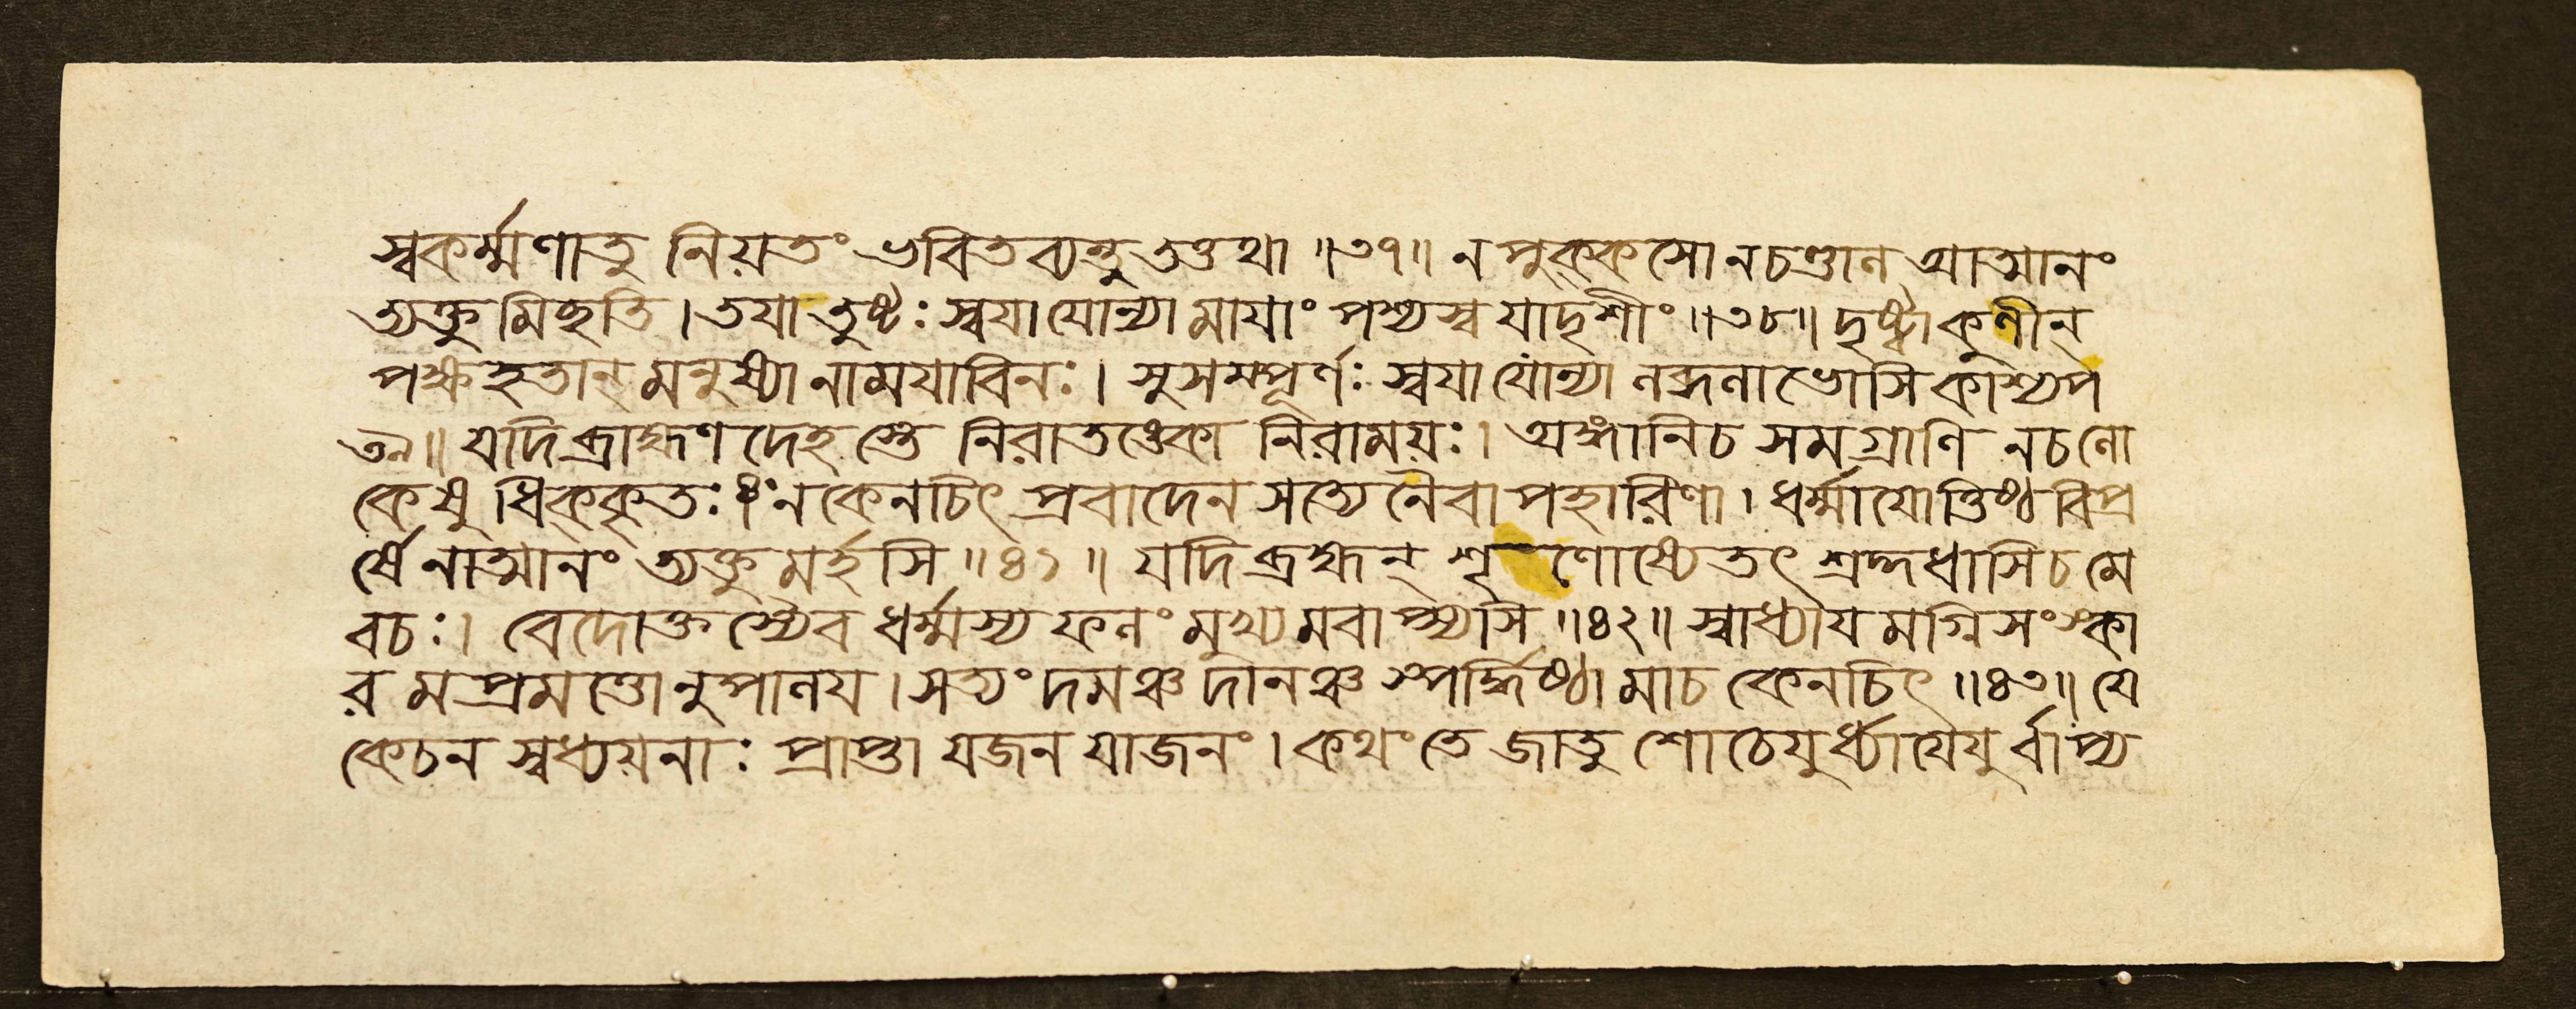 স্বকর্ম্মণাতু নিয়তং ভবিতব্যন্তু তত্তথা ॥৩৭॥ ন পুক্কসো ন চণ্ডাল আত্মানং
ত্যক্তুমিচ্ছতি । তয়া তুষ্টঃ স্বয়া যোন্যা মায়াং পশ্যস্ব যাদৃশীং ॥৩৮॥ দৃষ্ট্বা কুণীন্
পক্ষহতান্ মনুষ্যানাময়াবিনঃ । সুসম্পূর্ণঃ স্বয়া যোন্যা লব্ধলাভোসি কাশ্যপ
৩৯॥ যদি ব্রাহ্মণ দেহস্তে নিরাতঙ্কো নিরাময়ঃ । অঙ্গানি চ সমগ্রাণি ন চ লো
কেষু ধিক্কৃতঃ ন কেনচিৎ প্রবাদেন সত্যেনৈবাপহারিণা । ধর্ম্মায়োত্তিষ্ঠ বিপ্র
র্ষে নাত্মানং ত্যক্তুমর্হসি ॥৪১॥ যদি ব্রহ্মন্ শৃণোষ্যেতৎ শ্রদ্দধাসি চ মে
বচঃ । বেদোক্তস্যৈব ধর্ম্মস্য ফলং মুখ্যমবাপ্স্যসি ॥৪২॥ স্বাধ্যায়মগ্নিসংস্কা
রমপ্রমত্তোনুপালয় । সত্যং দমঞ্চ দানঞ্চ স্পর্দ্ধিষ্ঠা মা চ কেনচিৎ ॥৪৩॥ যে
কেচন স্বধ্যয়নাঃ প্রাপ্তা যজন যাজনং । কথং তে জাতু শোচেয়ুর্ধ্যায়েয়ুর্বাপ্য